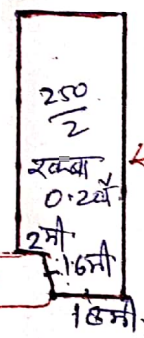 250
2
रकबा
0.2हे
2मी
16मी
18मी